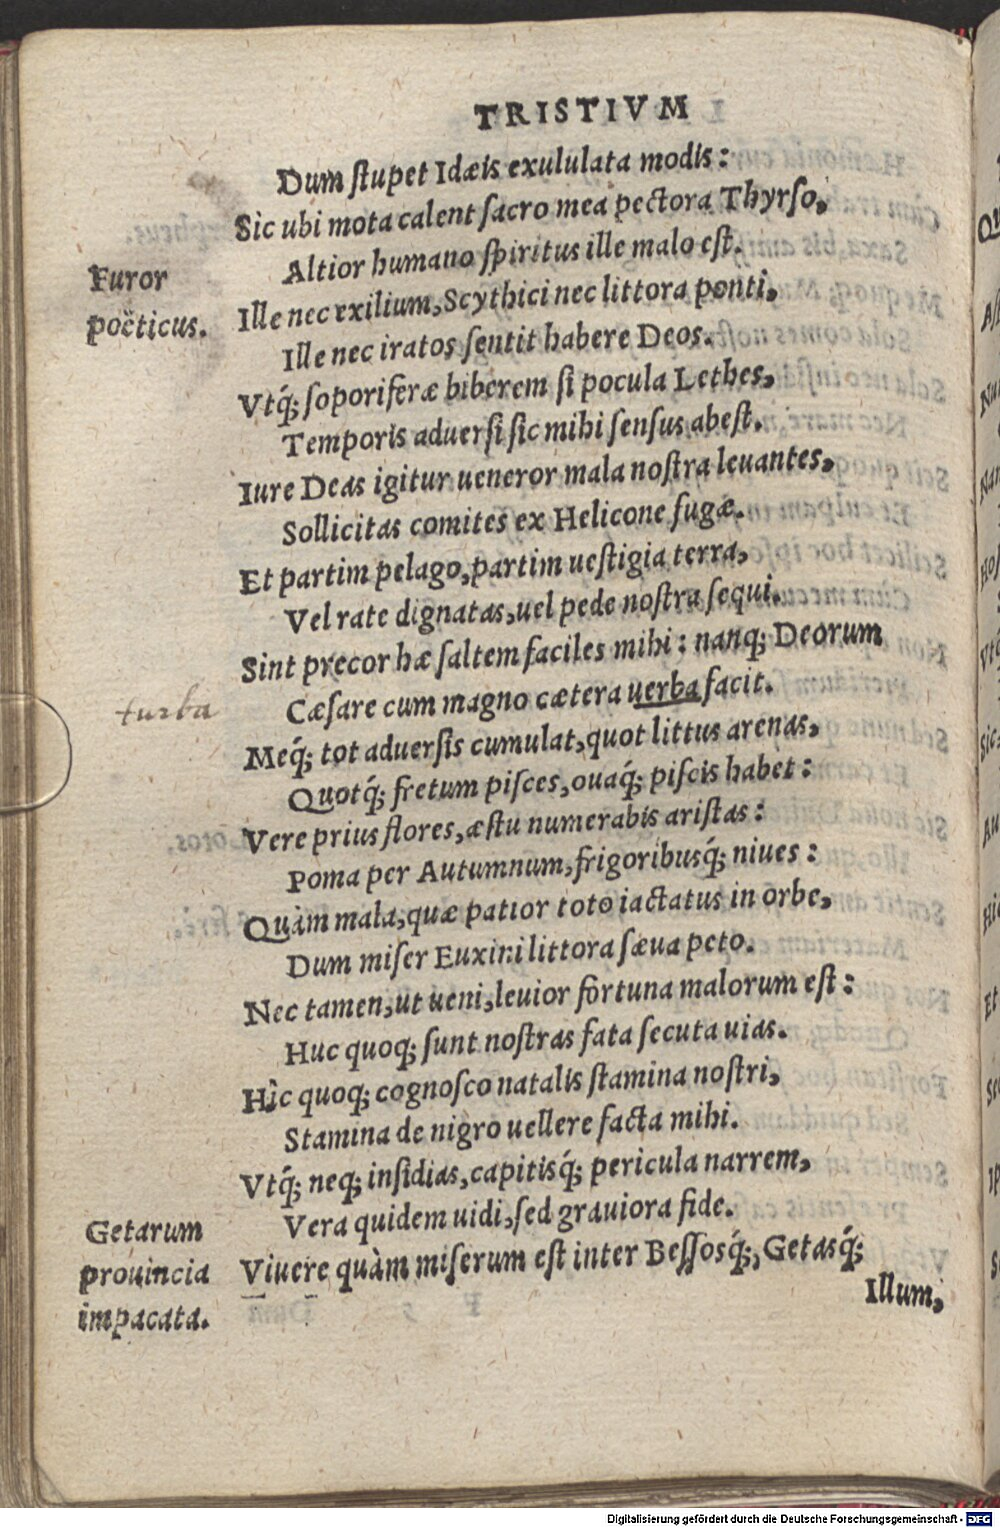 TRISTIVM
Dum ſtupet Idæis exululata modis:
Sic ubi mota calent ſacro mea pectora Thyrſo,
Altior humano ſpiritus ille malo eſt.
Furor
Ille nec exilium, Scythici nec littora ponti,
poëticus.
Ille nec iratos ſentit habere Deos.
Vtq́; ſoporiferæ biberem ſi pocula Lethes,
Temporis aduerſi ſic mihi ſenſus abeſt.
Iure Deas igitur ueneror mala noſtra leuantes,
Sollicitas comites ex Helicone fugæ.
Et partim pelago, partim ueſtigia terra,
Vel rate dignatas, uel pede noſtra ſequi.
Sint precor hæ ſaltem faciles mihi: nanq; Deorum
turba
Cæſare cum magno cætera uerba facit.
Meq́; tot aduerſis cumulat, quot littus arenas,
Quotq́; fretum piſces, ouaq́; piſcis habet:
Vere prius flores, æſtu numerabis ariſtas:
Poma per Autumnum, frigoribusq́; niues:
Quàm mala, quæ patior toto iactatus in orbe,
Dum miſer Euxini littora ſæua peto.
Nec tamen, ut ueni, leuior fortuna malorum eſt:
Huc quoq; ſunt noſtras fata ſecuta uias.
Hîc quoq; cognoſco natalis ſtamina noſtri,
Stamina de nigro uellere facta mihi.
Vtq́; neq; inſidias, capitisq́; pericula narrem,
Vera quidem uidi, ſed grauiora fide.
Getarum
prouincia
impacata.
Viuere quàm miſerum eſt inter Beſſosq́;, Getasq́;
Illum,
Digitalisierung gefördert durch die Deutsche Forschungsgemeinschaft - DFG